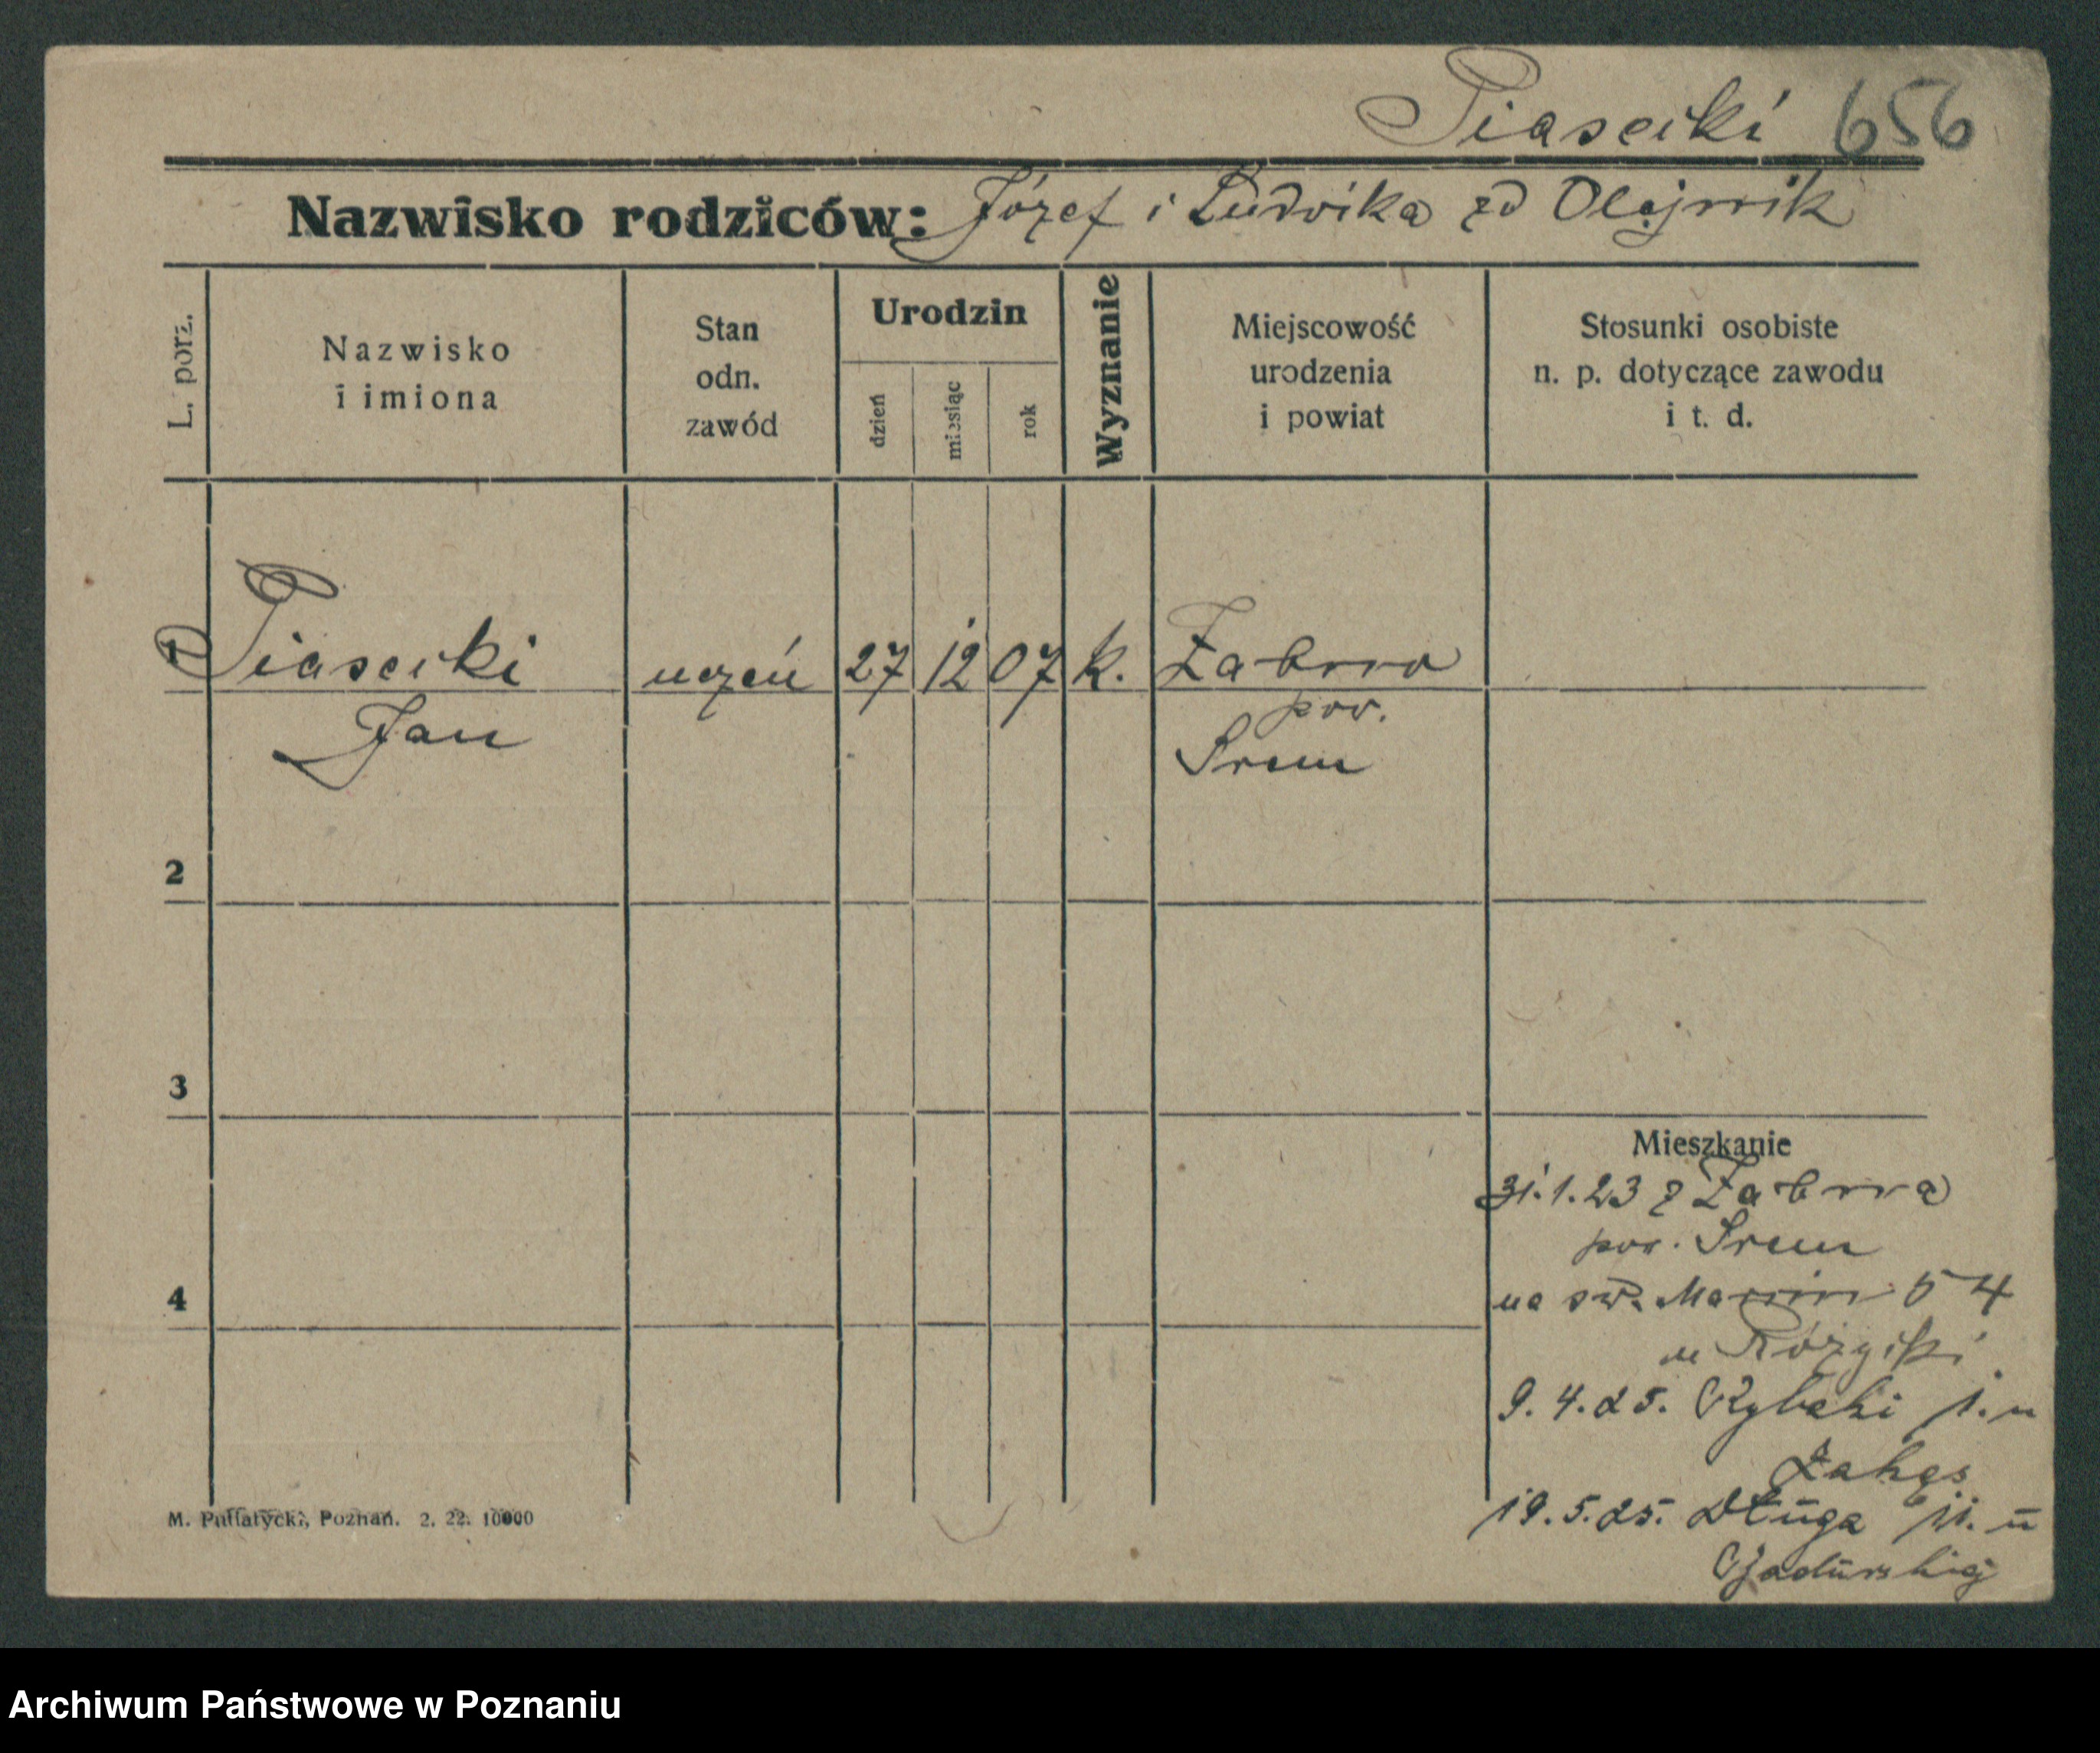 Piasecki 656
Nazwisko rodziców: Józef i Ludwika zd Olejnik
L. porz.
Nazwisko
i imiona
Stan
odn.
zawód
Urodzin
dzień
miesiąc
rok
Wyznanie
Miejscowość
urodzenia
i powiat
Stosunki osobiste
n. p. dotyczące zawodu
i t. d.
1 Piasecki uczeń 27 12 07 k. Żabno
Jan pow.
Śrem
2
3
4
Mieszkanie
31.1.23 z Żabna
pow. Śrem
na św. Marcin 54
u
9.4.25. Rybaki 1. u
19.5.25. Długa 11. u
M. Putiatycki, Poznań. 2. 22. 10000
Archiwum Państwowe w Poznaniu